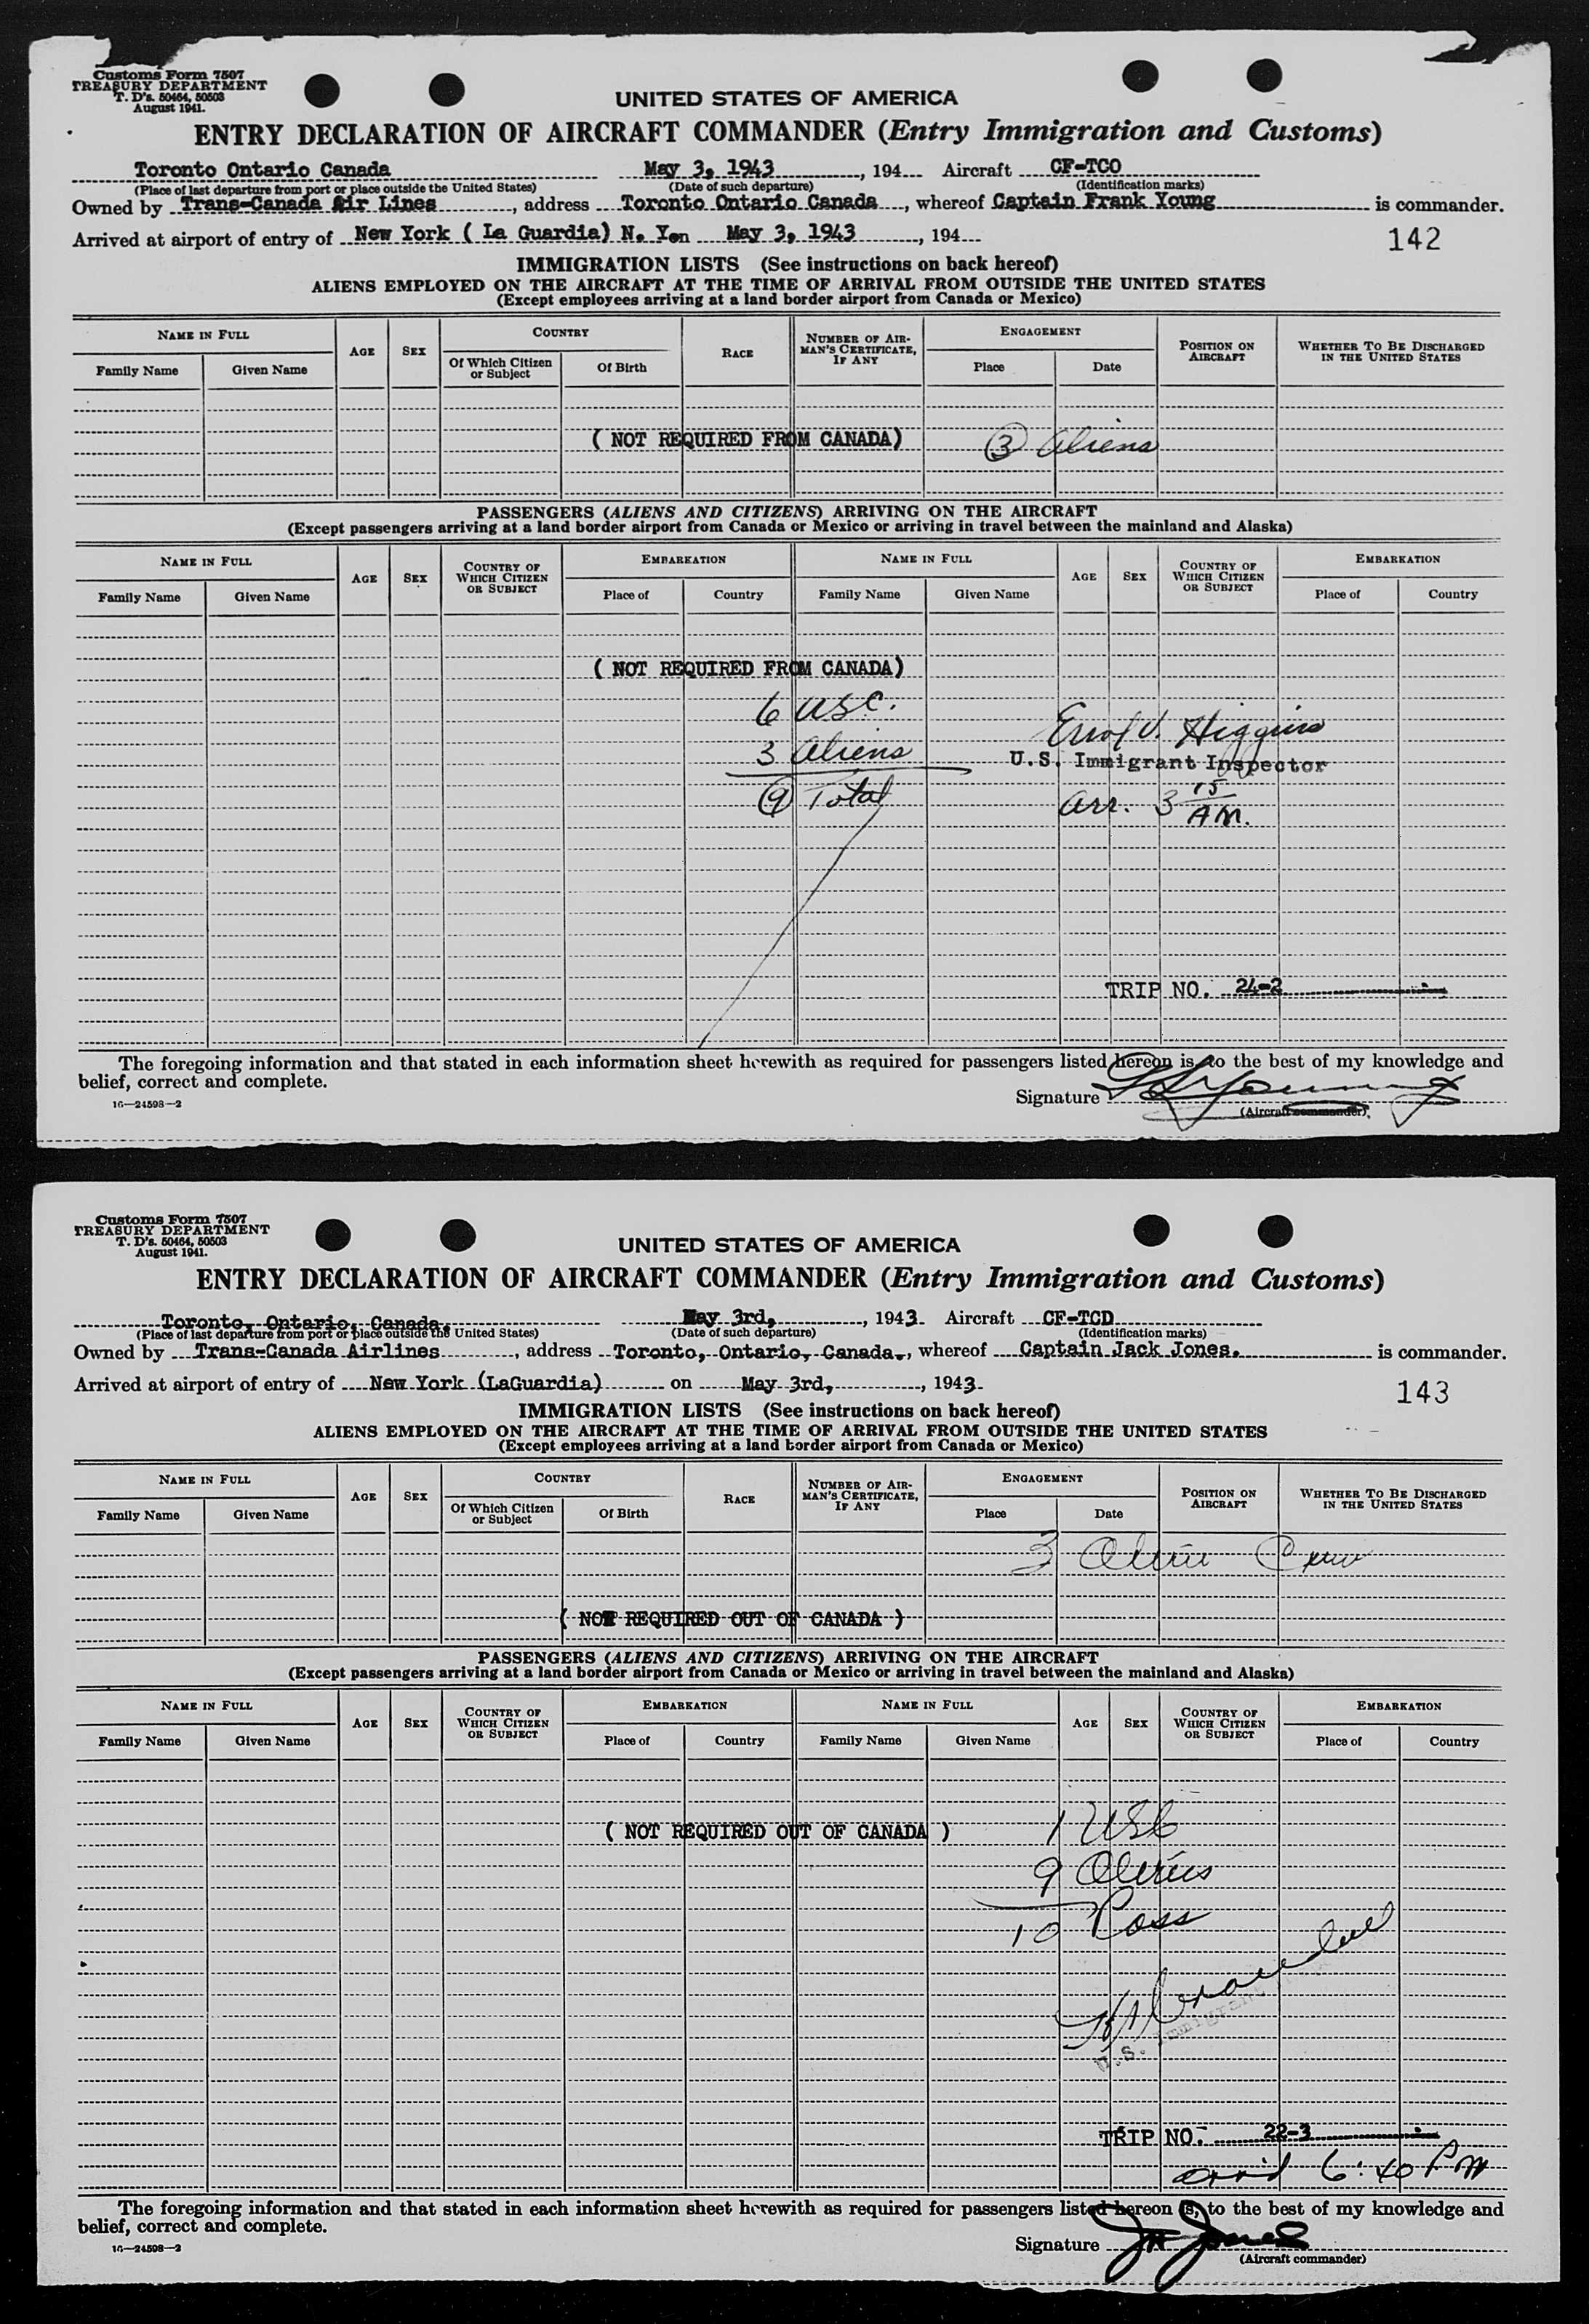 Customs Form 7507
TREASURY DEPARTMENT
T. D's. 50464, 50503
August 1941.
UNITED STATES OF AMERICA
ENTRY DECLARATION OF AIRCRAFT COMMANDER (Entry Immigration and Customs)
Toronto Ontario Canada May 3, 1943, 194 Aircraft CF-TCO
(Place of last departure from port or place outside the United States) (Date of such departure) (Identification marks)
Owned by Trans-Canada Air Lines, address Toronto Ontario Canada, whereof Captain Frank Young is commander.
Arrived at airport of entry of New York ( La Guardia) N. Y. on May 3, 1943, 194
142
IMMIGRATION LISTS (See instructions on back hereof)
ALIENS EMPLOYED ON THE AIRCRAFT AT THE TIME OF ARRIVAL FROM OUTSIDE THE UNITED STATES
(Except employees arriving at a land border airport from Canada or Mexico)
NAME IN FULL AGE SEX COUNTRY RACE NUMBER OF AIRMAN'S CERTIFICATE, IF ANY ENGAGEMENT POSITION ON AIRCRAFT WHETHER TO BE DISCHARGED IN THE UNITED STATES
Family Name Given Name Of Which Citizen or Subject Of Birth Place Date
( NOT REQUIRED FROM CANADA) 3 Aliens
PASSENGERS (ALIENS AND CITIZENS) ARRIVING ON THE AIRCRAFT
(Except passengers arriving at a land border airport from Canada or Mexico or arriving in travel between the mainland and Alaska)
NAME IN FULL AGE SEX COUNTRY OF WHICH CITIZEN OR SUBJECT EMBARKATION NAME IN FULL AGE SEX COUNTRY OF WHICH CITIZEN OR SUBJECT EMBARKATION
Family Name Given Name Place of Country Family Name Given Name Place of Country
( NOT REQUIRED FROM CANADA)
6 USC.
3 Aliens
9 Total
Errol V. Higgins
U.S. Immigrant Inspector
Arr. 3 15 AM.
TRIP NO. 24-2
The foregoing information and that stated in each information sheet herewith as required for passengers listed hereon is, to the best of my knowledge and
belief, correct and complete.
16—24598—2
Signature Young
(Aircraft commander)
Customs Form 7507
TREASURY DEPARTMENT
T. D's. 50464, 50503
August 1941.
UNITED STATES OF AMERICA
ENTRY DECLARATION OF AIRCRAFT COMMANDER (Entry Immigration and Customs)
Toronto, Ontario, Canada, May 3rd, , 1943 Aircraft CF-TCD
(Place of last departure from port or place outside the United States) (Date of such departure) (Identification marks)
Owned by Trans-Canada Airlines, address Toronto, Ontario, Canada., whereof Captain Jack Jones. is commander.
Arrived at airport of entry of New York (LaGuardia) on May 3rd, , 1943
143
IMMIGRATION LISTS (See instructions on back hereof)
ALIENS EMPLOYED ON THE AIRCRAFT AT THE TIME OF ARRIVAL FROM OUTSIDE THE UNITED STATES
(Except employees arriving at a land border airport from Canada or Mexico)
NAME IN FULL AGE SEX COUNTRY RACE NUMBER OF AIRMAN'S CERTIFICATE, IF ANY ENGAGEMENT POSITION ON AIRCRAFT WHETHER TO BE DISCHARGED IN THE UNITED STATES
Family Name Given Name Of Which Citizen or Subject Of Birth Place Date
3 Alien Crew
( NOT REQUIRED OUT OF CANADA )
PASSENGERS (ALIENS AND CITIZENS) ARRIVING ON THE AIRCRAFT
(Except passengers arriving at a land border airport from Canada or Mexico or arriving in travel between the mainland and Alaska)
NAME IN FULL AGE SEX COUNTRY OF WHICH CITIZEN OR SUBJECT EMBARKATION NAME IN FULL AGE SEX COUNTRY OF WHICH CITIZEN OR SUBJECT EMBARKATION
Family Name Given Name Place of Country Family Name Given Name Place of Country
( NOT REQUIRED OUT OF CANADA )
1 USC
9 Aliens
10 Pass
U.S. Immigrant
TRIP NO. 22-3
arr'd 6:40 PM
The foregoing information and that stated in each information sheet herewith as required for passengers listed hereon is, to the best of my knowledge and
belief, correct and complete.
16—24598—2
Signature Jones
(Aircraft commander)